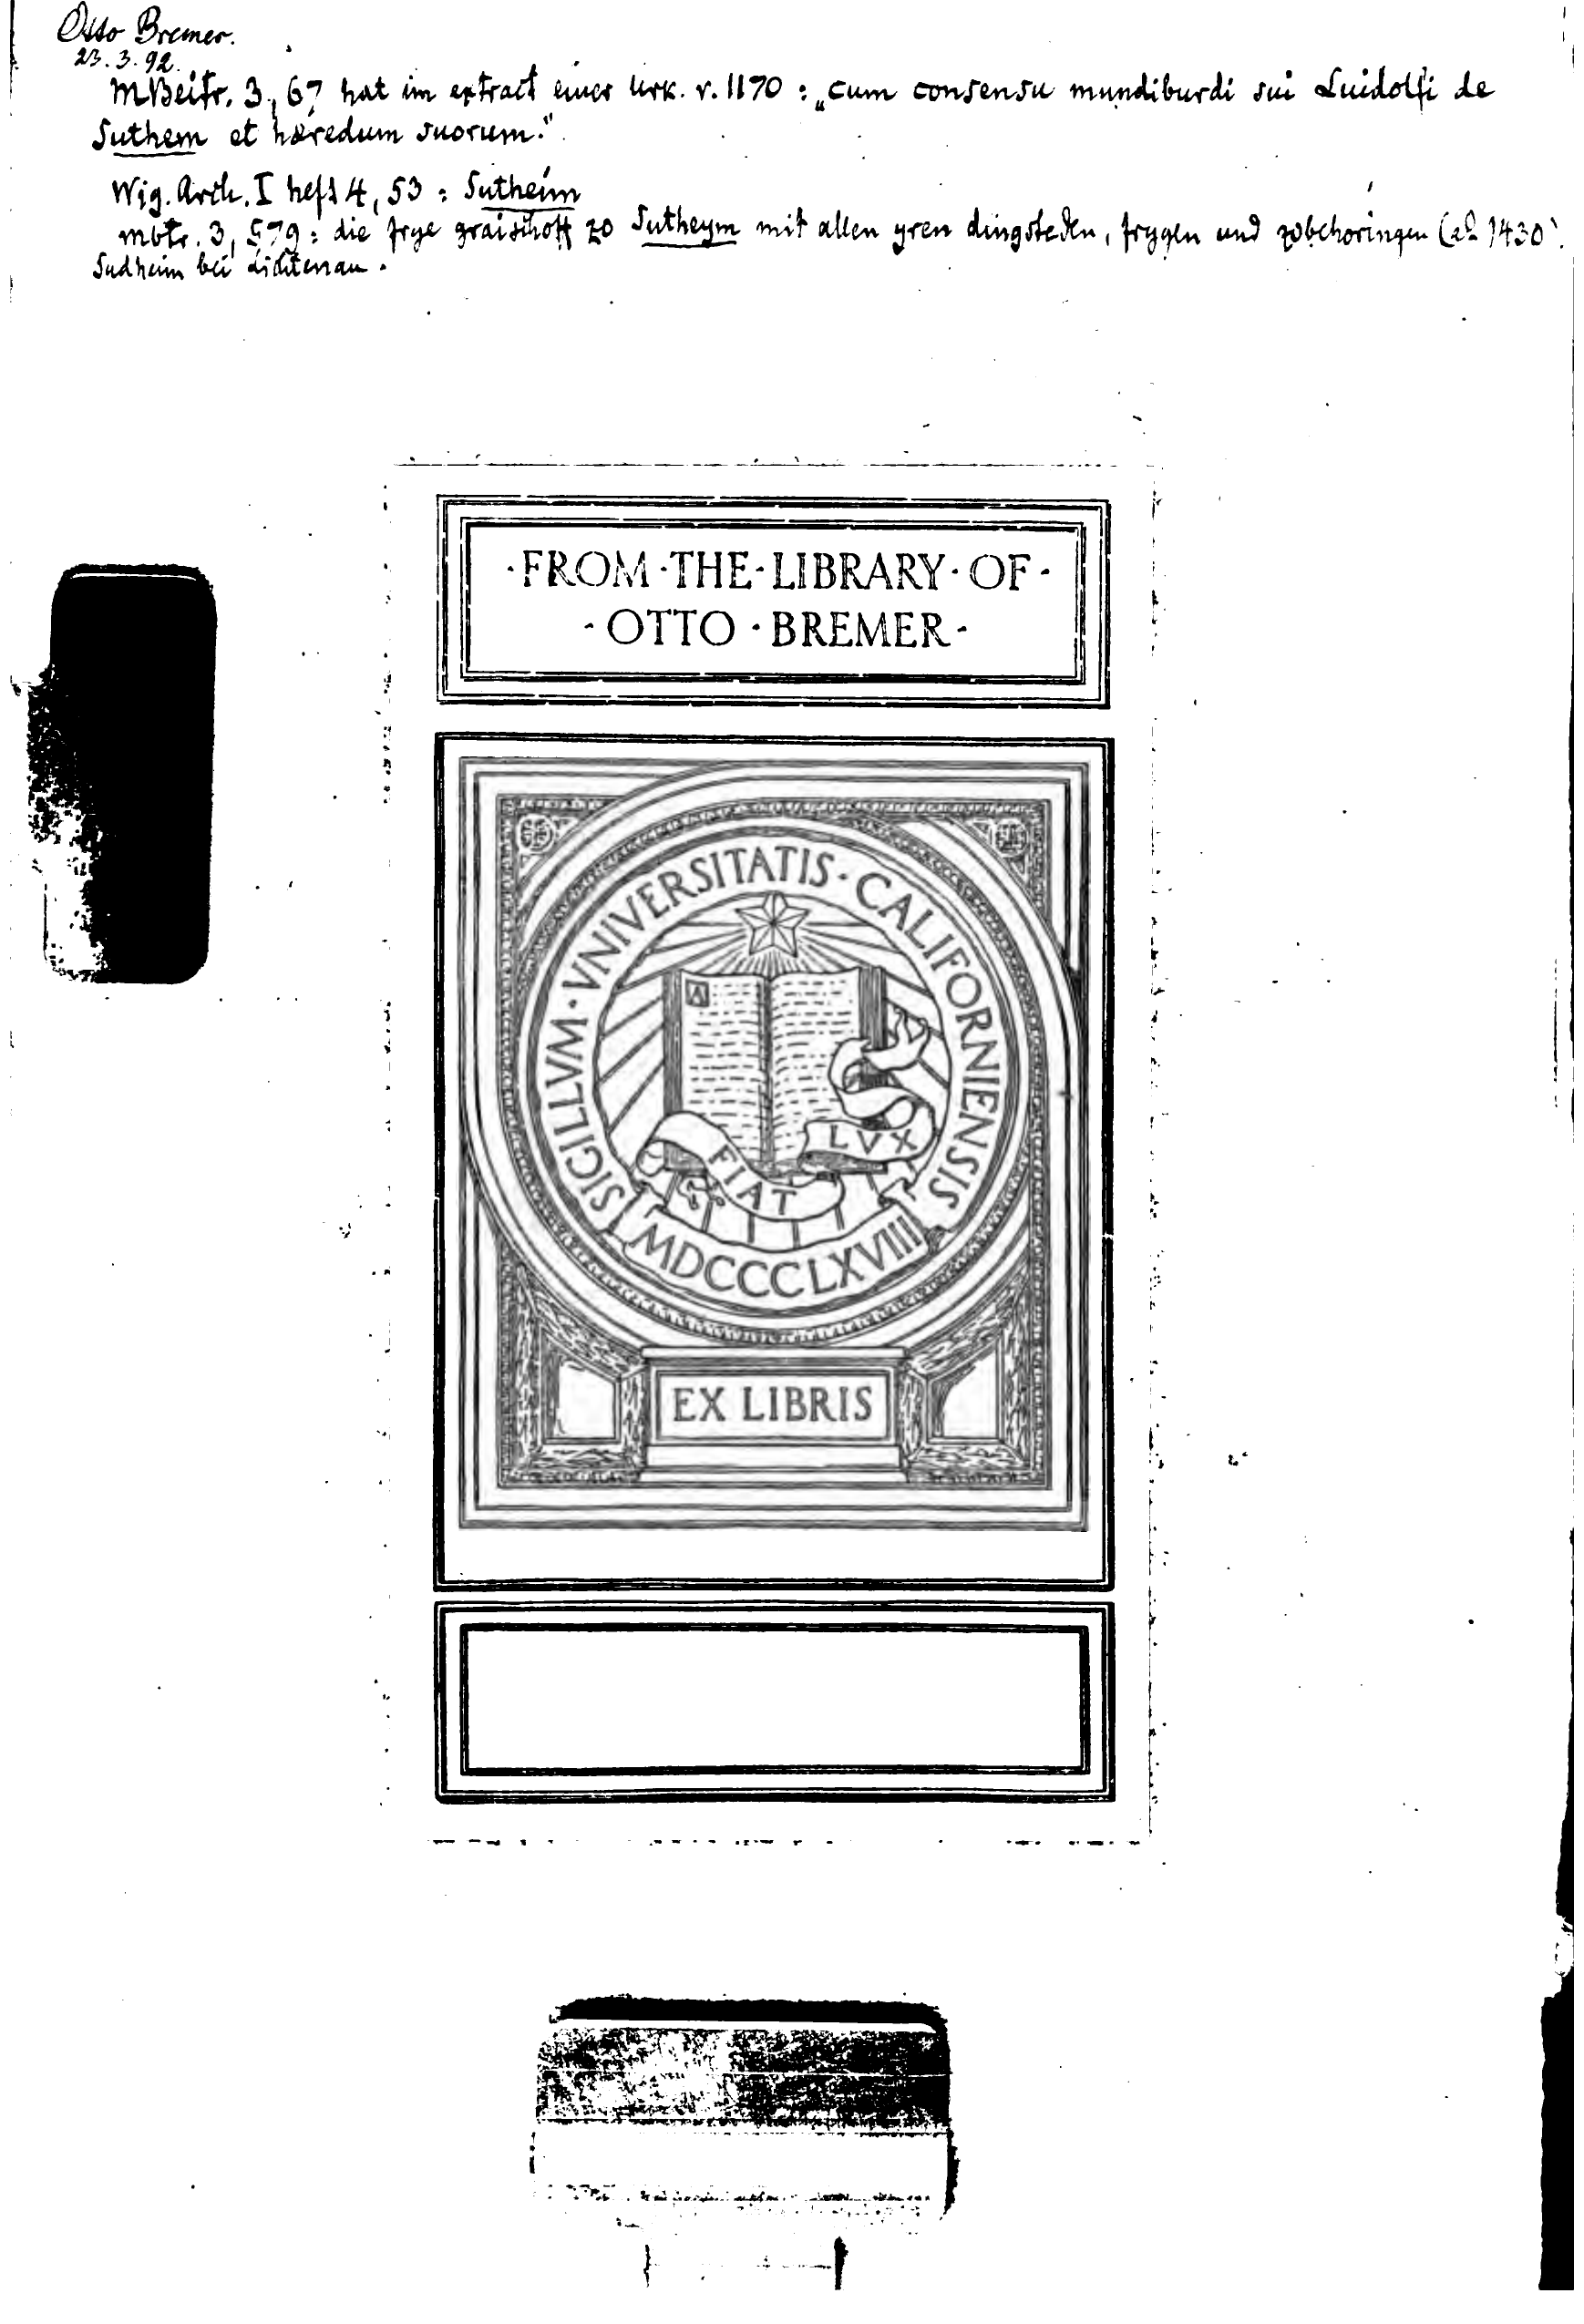 Otto Bremer.
23.3.92.
MBeitr. 3, 67 hat im extract einer urk. v. 1170 : „Cum consensu mundiburdi sui Luidolfi de
Suthem et hæredum suorum."
Wig. Arch. I heft 4, 53 : Sutheim
Mbtr. 3, 579 : die frye graischoff zo Sutheym mit allen yren dingsteden, frygen und zobehoringen (ao 1430).
Sudheim bei Lichtenau.
·FROM·THE·LIBRARY·OF·
·OTTO·BREMER·
SIGILLVM·VNIVERSITATIS·CALIFORNIENSIS
A
FIAT LVX
MDCCCLXVIII
EX LIBRIS